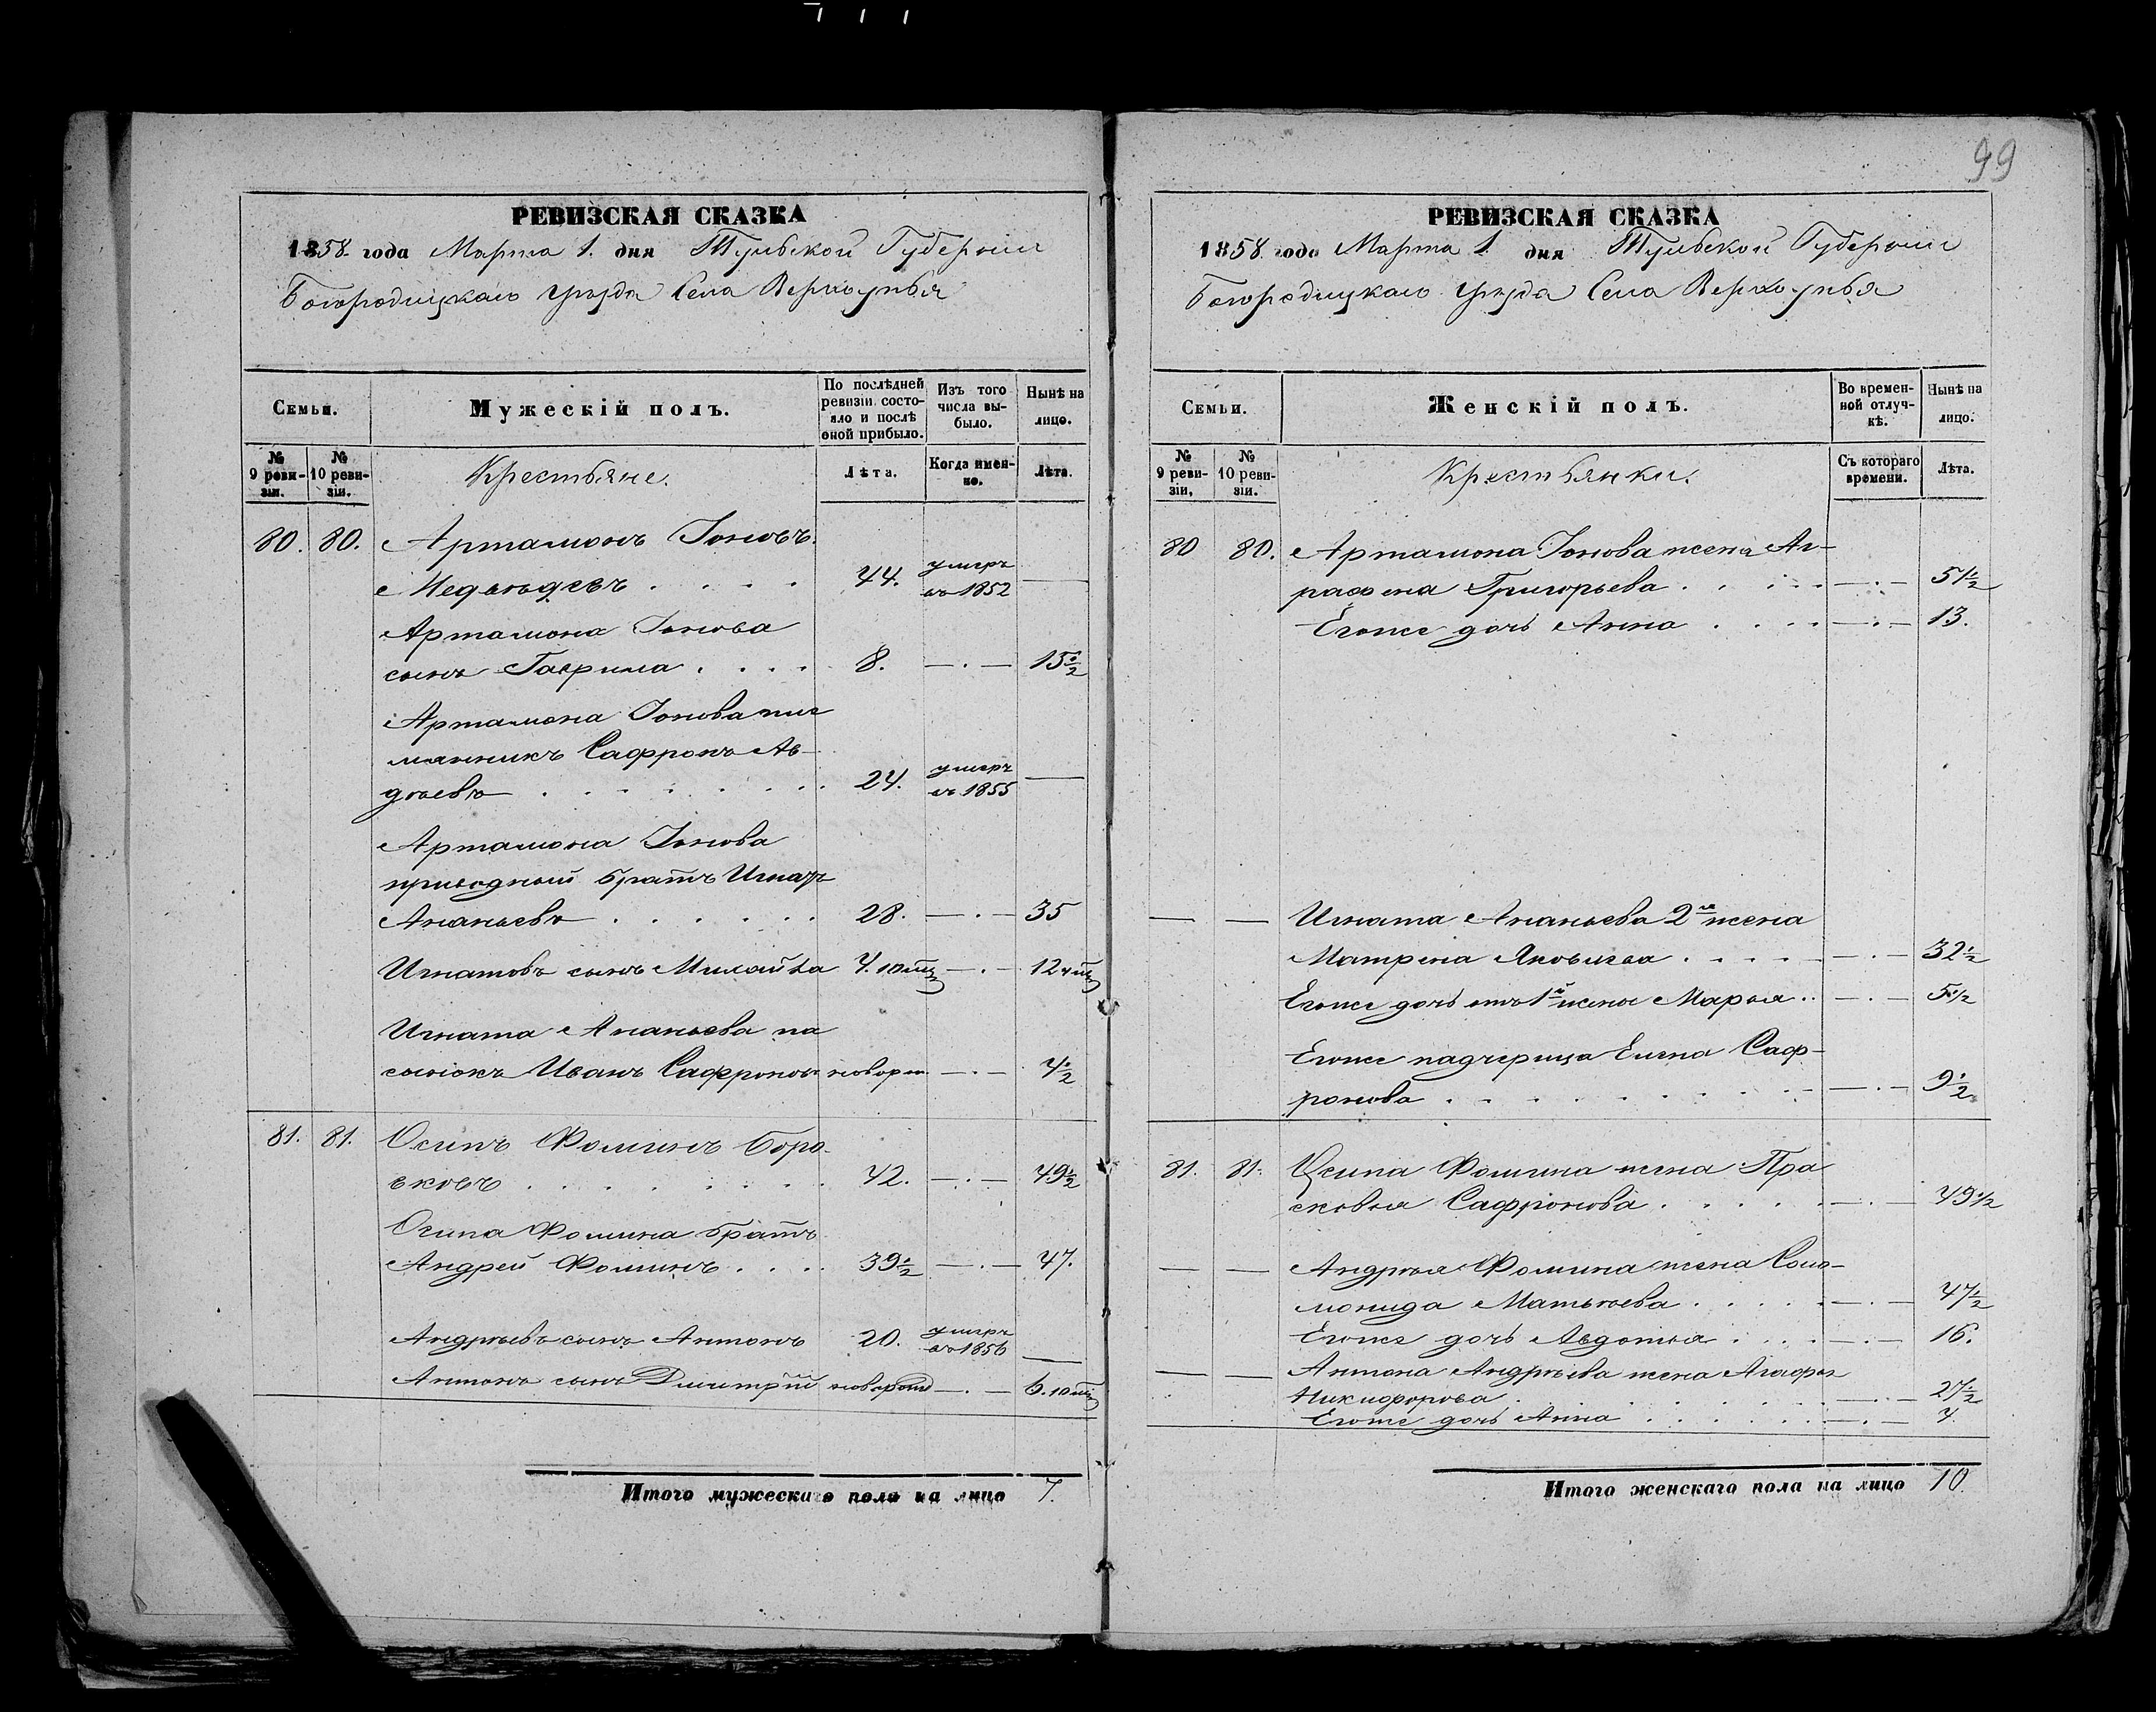 99
РЕВИЗСКАЯ СКАЗКА
1858. года Марта 1. дня Тульской Губернии
Богородицкаго уѣзда Села Верхоупья
Семьи.
Мужескій полъ.
По послѣдней ревизіи состояло и послѣ оной прибыло.
Изъ того числа выбыло.
Нынѣ на лицо.
№ 9 ревизіи.
№ 10 ревизіи.
Крестьяне.
Лѣта.
Когда именно.
Лѣта.
80. 80. Артамонъ Іоновъ
Медвѣдевъ . . . . 44. умеръ въ 1852 —
Артамона Іонова
сынъ Гаврила . . . . 8. —·— 15½
Артамона Іонова пле
мянникъ Сафронъ Ав-
дѣевъ . . . . . . . . 24. умеръ въ 1855 —
Артамона Іонова
приводный братъ Игнатъ
Ананьевъ . . . . . . 28. —·— 35
Игнатовъ сынъ Михайла 4. 10 мѣц —·— 12 4 мѣц
Игната Ананьева па
сынокъ Иванъ Сафроновъ новорож. —·— 4½
81. 81. Осипъ Фоминъ Боро-
вковъ . . . . . . . . 42. —·— 49½
Осипа Фомина братъ
Андрей Фоминъ . . . . 39½ —·— 47.
Андрѣевъ сынъ Антонъ 20. умеръ въ 1856 —
Антонъ сынъ Дмитрій новорожд —·— 6. 10 мѣц
Итого мужескаго пола на лицо 7.
РЕВИЗСКАЯ СКАЗКА
1858. года Марта 1. дня Тульской Губернии
Богородицкаго уѣзда Села Верхоупья
Семьи.
Женскій полъ.
Во временной отлучкѣ.
Нынѣ на лицо.
№ 9 ревизіи,
№ 10 ревизіи.
Крестьянки.
Съ котораго времени.
Лѣта.
80 80. Артамона Іонова жена Аг-
рафена Григорьева . . . . —·— 51½
Егоже дочь Анна . . . . —·— 13.
— — Игната Ананьева 2я жена
Матрена Яковлева . . . . —·— 32½
Егоже дочь отъ 1й жены Марья . . —·— 5½
Егоже падчерица Елена Саф-
ронова . . . . . . . . —·— 9½
81. 81. Осипа Фомина жена Пра
сковья Сафронова . . . . . —·— 49½
— — Андрѣя Фомина жена Соло-
монида Матвѣева . . . . . —·— 47½
Егоже дочь Авдотья . . . . —·— 16.
— — Антона Андрѣева жена Агафья
Никифорова . . . . . . —·— 27½
Егоже дочь Анна . . . . . . —·— 4.
Итого женскаго пола на лицо 10.